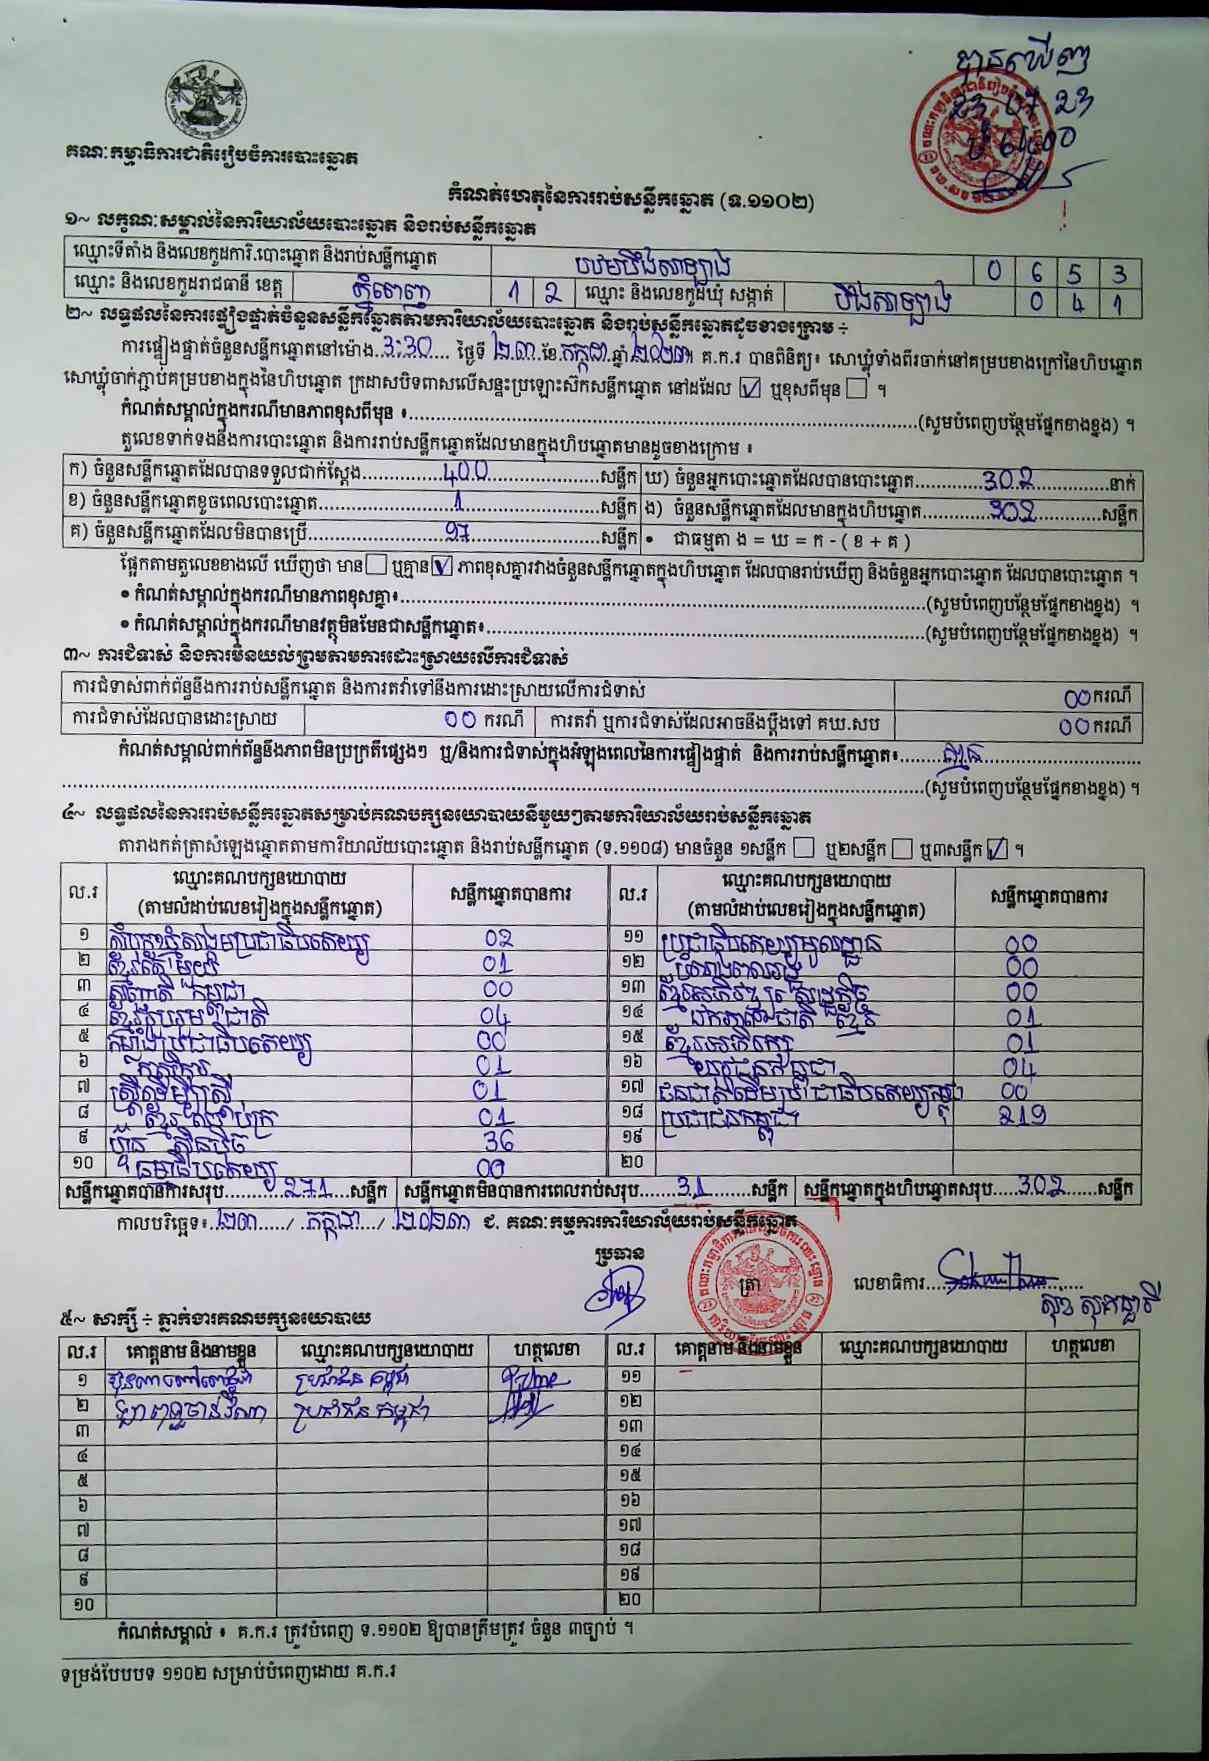 បានឃើញ
23 07 23
គណៈកម្មាធិការជាតិរៀបចំការបោះឆ្នោត
កំណត់ហេតុនៃការរាប់សន្លឹកឆ្នោត (ទ.១១០២)
១~ លក្ខណៈសម្គាល់នៃការិយាល័យបោះឆ្នោត និងរាប់សន្លឹកឆ្នោត
ឈ្មោះទីតាំង និងលេខកូដការិ.បោះឆ្នោត និងរាប់សន្លឹកឆ្នោត បឋមបឹងសាឡាង 0 6 5 3
ឈ្មោះ និងលេខកូដរាជធានី ខេត្ត ភ្នំពេញ 1 2 ឈ្មោះ និងលេខកូដឃុំ សង្កាត់ បឹងសាឡាង 0 4 1
២~ លទ្ធផលនៃការផ្ទៀងផ្ទាត់ចំនួនសន្លឹកឆ្នោតតាមការិយាល័យបោះឆ្នោត និងរាប់សន្លឹកឆ្នោតដូចខាងក្រោម ÷
ការផ្ទៀងផ្ទាត់ចំនួនសន្លឹកឆ្នោតនៅម៉ោង..3:30.... ថ្ងៃទី ២៣.ខែ.កក្កដា.ឆ្នាំ២០២៣។ គ.ក.រ បានពិនិត្យ៖ សោឃ្លុំទាំងពីរចាក់នៅគម្របខាងក្រៅនៃហិបឆ្នោត
សោឃ្លុំចាក់ភ្ជាប់គម្របខាងក្នុងនៃហិបឆ្នោត ក្រដាសបិទពាសលើសន្ទះប្រឡោះស៊កសន្លឹកឆ្នោត នៅដដែល ☑ ឬខុសពីមុន ☐ ។
កំណត់សម្គាល់ក្នុងករណីមានភាពខុសពីមុន ៖..........(សូមបំពេញបន្ថែមផ្នែកខាងខ្នង) ។
តួលេខទាក់ទងនឹងការបោះឆ្នោត និងការរាប់សន្លឹកឆ្នោតដែលមានក្នុងហិបឆ្នោតមានដូចខាងក្រោម ៖
ក) ចំនួនសន្លឹកឆ្នោតដែលបានទទួលជាក់ស្តែង..........400..........សន្លឹក ឃ) ចំនួនអ្នកបោះឆ្នោតដែលបានបោះឆ្នោត..........302..........នាក់
ខ) ចំនួនសន្លឹកឆ្នោតខូចពេលបោះឆ្នោត..........1..........សន្លឹក ង) ចំនួនសន្លឹកឆ្នោតដែលមានក្នុងហិបឆ្នោត..........302..........សន្លឹក
គ) ចំនួនសន្លឹកឆ្នោតដែលមិនបានប្រើ..........97..........សន្លឹក • ជាធម្មតា ង = ឃ = ក - ( ខ + គ )
ផ្អែកតាមតួលេខខាងលើ ឃើញថា មាន☐ ឬគ្មាន☑ ភាពខុសគ្នារវាងចំនួនសន្លឹកឆ្នោតក្នុងហិបឆ្នោត ដែលបានរាប់ឃើញ និងចំនួនអ្នកបោះឆ្នោត ដែលបានបោះឆ្នោត ។
• កំណត់សម្គាល់ក្នុងករណីមានភាពខុសគ្នា៖..........(សូមបំពេញបន្ថែមផ្នែកខាងខ្នង) ។
• កំណត់សម្គាល់ក្នុងករណីមានវត្ថុមិនមែនជាសន្លឹកឆ្នោត៖..........(សូមបំពេញបន្ថែមផ្នែកខាងខ្នង) ។
៣~ ការជំទាស់ និងការមិនយល់ព្រមតាមការដោះស្រាយលើការជំទាស់
ការជំទាស់ពាក់ព័ន្ធនឹងការរាប់សន្លឹកឆ្នោត និងការតវ៉ាទៅនឹងការដោះស្រាយលើការជំទាស់ 00 ករណី
ការជំទាស់ដែលបានដោះស្រាយ 00 ករណី ការតវ៉ា ឬការជំទាស់ដែលអាចនឹងប្តឹងទៅ គឃ.សប 00 ករណី
កំណត់សម្គាល់ពាក់ព័ន្ធនឹងភាពមិនប្រក្រតីផ្សេងៗ ឬ/និងការជំទាស់ក្នុងអំឡុងពេលនៃការផ្ទៀងផ្ទាត់ និងការរាប់សន្លឹកឆ្នោត៖........គ្មាន..........
..........(សូមបំពេញបន្ថែមផ្នែកខាងខ្នង) ។
៤~ លទ្ធផលនៃការរាប់សន្លឹកឆ្នោតសម្រាប់គណបក្សនយោបាយនីមួយៗតាមការិយាល័យរាប់សន្លឹកឆ្នោត
តារាងកត់ត្រាសំឡេងឆ្នោតតាមការិយាល័យបោះឆ្នោត និងរាប់សន្លឹកឆ្នោត (ទ.១១០៨) មានចំនួន ១សន្លឹក ☐ ឬ២សន្លឹក ☐ ឬ៣សន្លឹក ☑ ។
ល.រ ឈ្មោះគណបក្សនយោបាយ (តាមលំដាប់លេខរៀងក្នុងសន្លឹកឆ្នោត) សន្លឹកឆ្នោតបានការ ល.រ ឈ្មោះគណបក្សនយោបាយ (តាមលំដាប់លេខរៀងក្នុងសន្លឹកឆ្នោត) សន្លឹកឆ្នោតបានការ
១ សំបុកឃ្មុំសង្គមប្រជាធិបតេយ្យ 02 ១១ ប្រជាធិបតេយ្យមូលដ្ឋាន 00
២ ខ្មែរតែមួយ 01 ១២ 00
៣ កម្ពុជា 00 ១៣ ខ្មែរអភិវឌ្ឍន៍សេដ្ឋកិច្ច 00
៤ ខ្មែររួបរួមជាតិ 04 ១៤ ឯកភាពជាតិខ្មែរ 01
៥ កម្លាំងប្រជាធិបតេយ្យ 00 ១៥ ខ្មែរអភិរក្ស 01
៦ កសិករ 01 ១៦ យុវជនកម្ពុជា 04
៧ ស្ត្រីដើម្បីស្ត្រី 01 ១៧ ជនជាតិដើមប្រជាធិបតេយ្យកម្ពុជា 00
៨ ខ្មែរឈប់ក្រ 01 ១៨ ប្រជាជនកម្ពុជា 219
៩ ហ្វ៊ុនស៊ិនប៉ិច 36 ១៩
១០ ធម្មាធិបតេយ្យ 00 ២០
សន្លឹកឆ្នោតបានការសរុប..........271....សន្លឹក សន្លឹកឆ្នោតមិនបានការពេលរាប់សរុប.......31........សន្លឹក សន្លឹកឆ្នោតក្នុងហិបឆ្នោតសរុប.....302......សន្លឹក
កាលបរិច្ឆេទ៖..២៣...../ .កក្កដា../ ២០២៣ ជ. គណៈកម្មការការិយាល័យរាប់សន្លឹកឆ្នោត
ប្រធាន
ត្រា
លេខាធិការ..........
៥~ សាក្សី ÷ ភ្នាក់ងារគណបក្សនយោបាយ
ល.រ គោត្តនាម និងនាមខ្លួន ឈ្មោះគណបក្សនយោបាយ ហត្ថលេខា ល.រ គោត្តនាម និងនាមខ្លួន ឈ្មោះគណបក្សនយោបាយ ហត្ថលេខា
១ ប្រជាជនកម្ពុជា ១១
២ ប្រជាជនកម្ពុជា ១២
៣ ១៣
៤ ១៤
៥ ១៥
៦ ១៦
៧ ១៧
៨ ១៨
៩ ១៩
១០ ២០
កំណត់សម្គាល់ ៖ គ.ក.រ ត្រូវបំពេញ ទ.១១០២ ឱ្យបានត្រឹមត្រូវ ចំនួន ៣ច្បាប់ ។
ទម្រង់បែបបទ ១១០២ សម្រាប់បំពេញដោយ គ.ក.រ